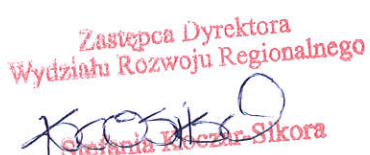 Zastępca Dyrektora
Wydziału Rozwoju Regionalnego
Stefania Koczar-Sikora